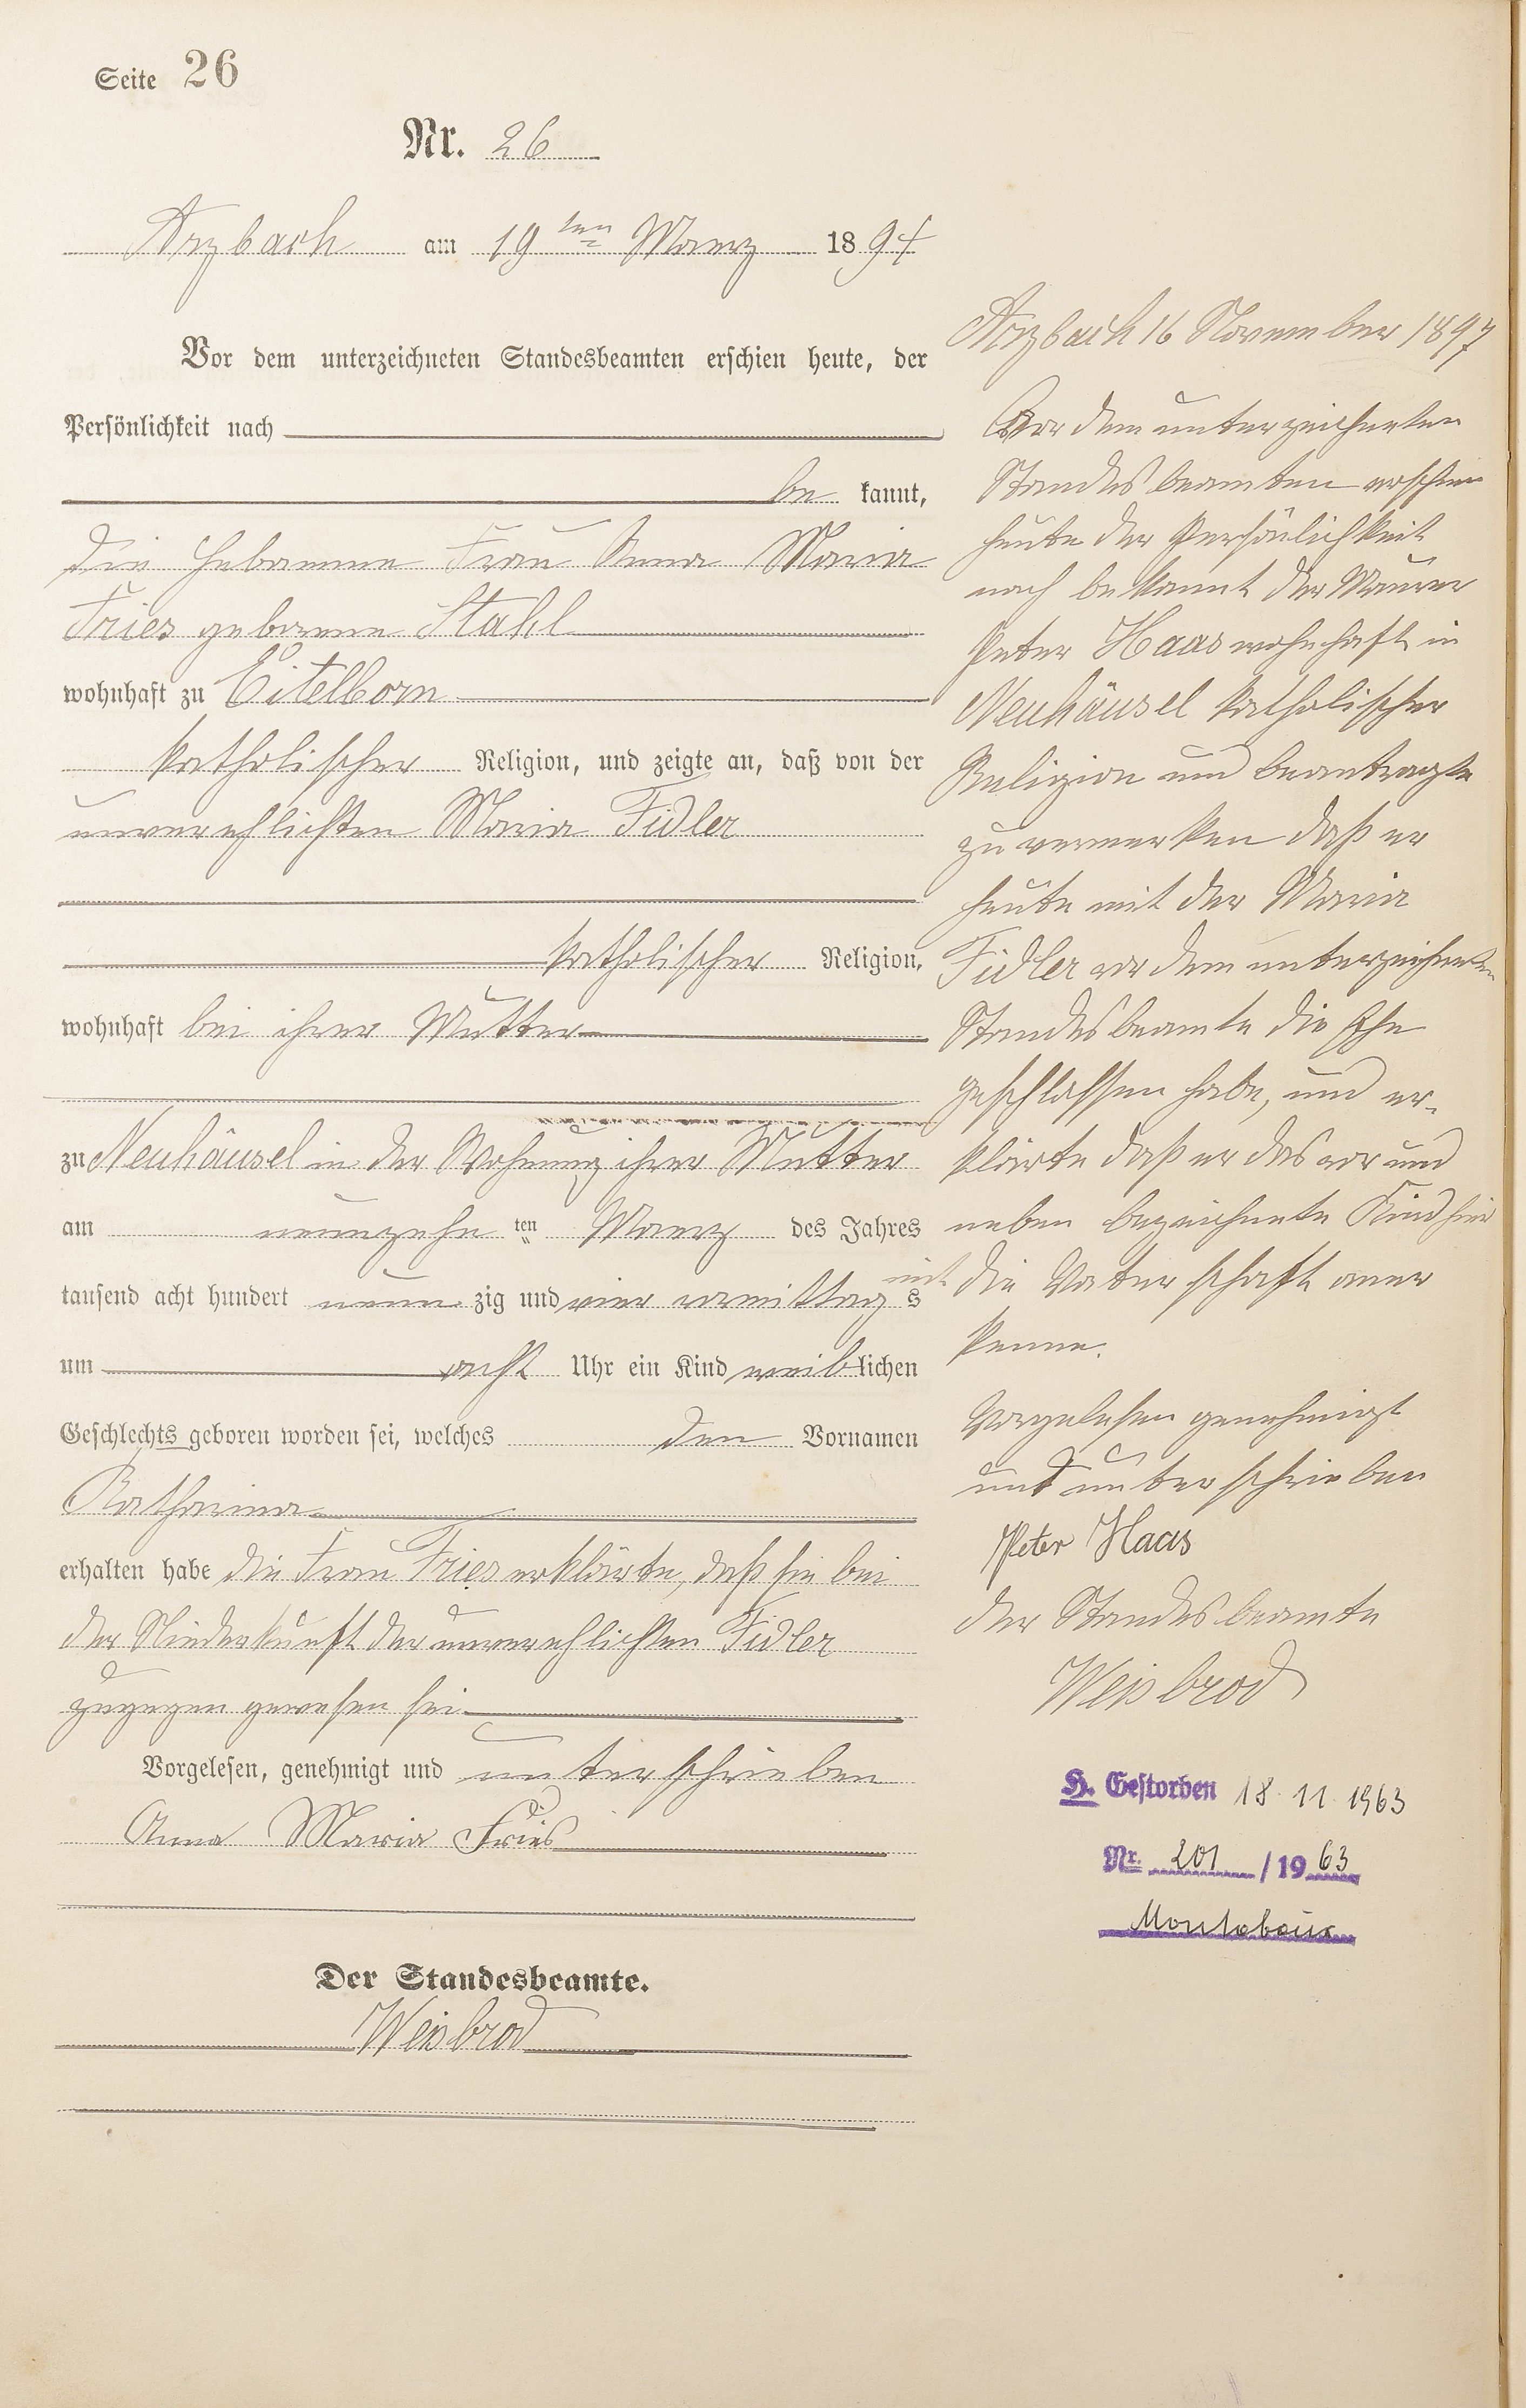 Seite 26
Nr. 26
Arzbach am 19ten Maerz 1894
Vor dem unterzeichneten Standesbeamten erschien heute, der
Persönlichkeit nach
be kannt,
die Hebamme Frau Anna Maria
Fries geborene Stahl
wohnhaft zu Eitelborn
katholischer Religion, und zeigte an, daß von der
unverehlichten Maria Fidler
katholischer Religion,
wohnhaft bei ihrer Mutter
zu Neuhäusel in der Wohnung ihrer Mutter
am neunzehn ten Maerz des Jahres
tausend acht hundert neun zig und vier vormittag s
um acht Uhr ein Kind weiblichen
Geschlechts geboren worden sei, welches den Vornamen
Katharina
erhalten habe die Frau Fries erklärte, daß sie bei
der Niederkunft der unverehlichten Fidler
zugegen gewesen sei.
Vorgelesen, genehmigt und unterschrieben
Anna Maria Fries
Der Standesbeamte.
Weisbrod
Arzbach 16 November 1897
Vor dem unterzeichneten
Standesbeamten erschien
heute der Persönlichkeit
nach bekannt der Maurer
Peter Haas wohnhaft in
Neuhäusel katholischer
Religion und beantragte
zu vermerken daß er
heute mit der Maria
Fidler vor dem unterzeichneten
Standesbeamte die Ehe
geschlossen habe, und er-
klärte daß er das vor und
neben bezeichnete Kind hier
mit die Vaterschaft aner
kenne.
Vorgelesen genehmigt
und unterschrieben
Peter Haas
der Standesbeamte
Weisbrod
H. Gestorben 18.11.1963
Nr. 201 / 1963
Montabaur